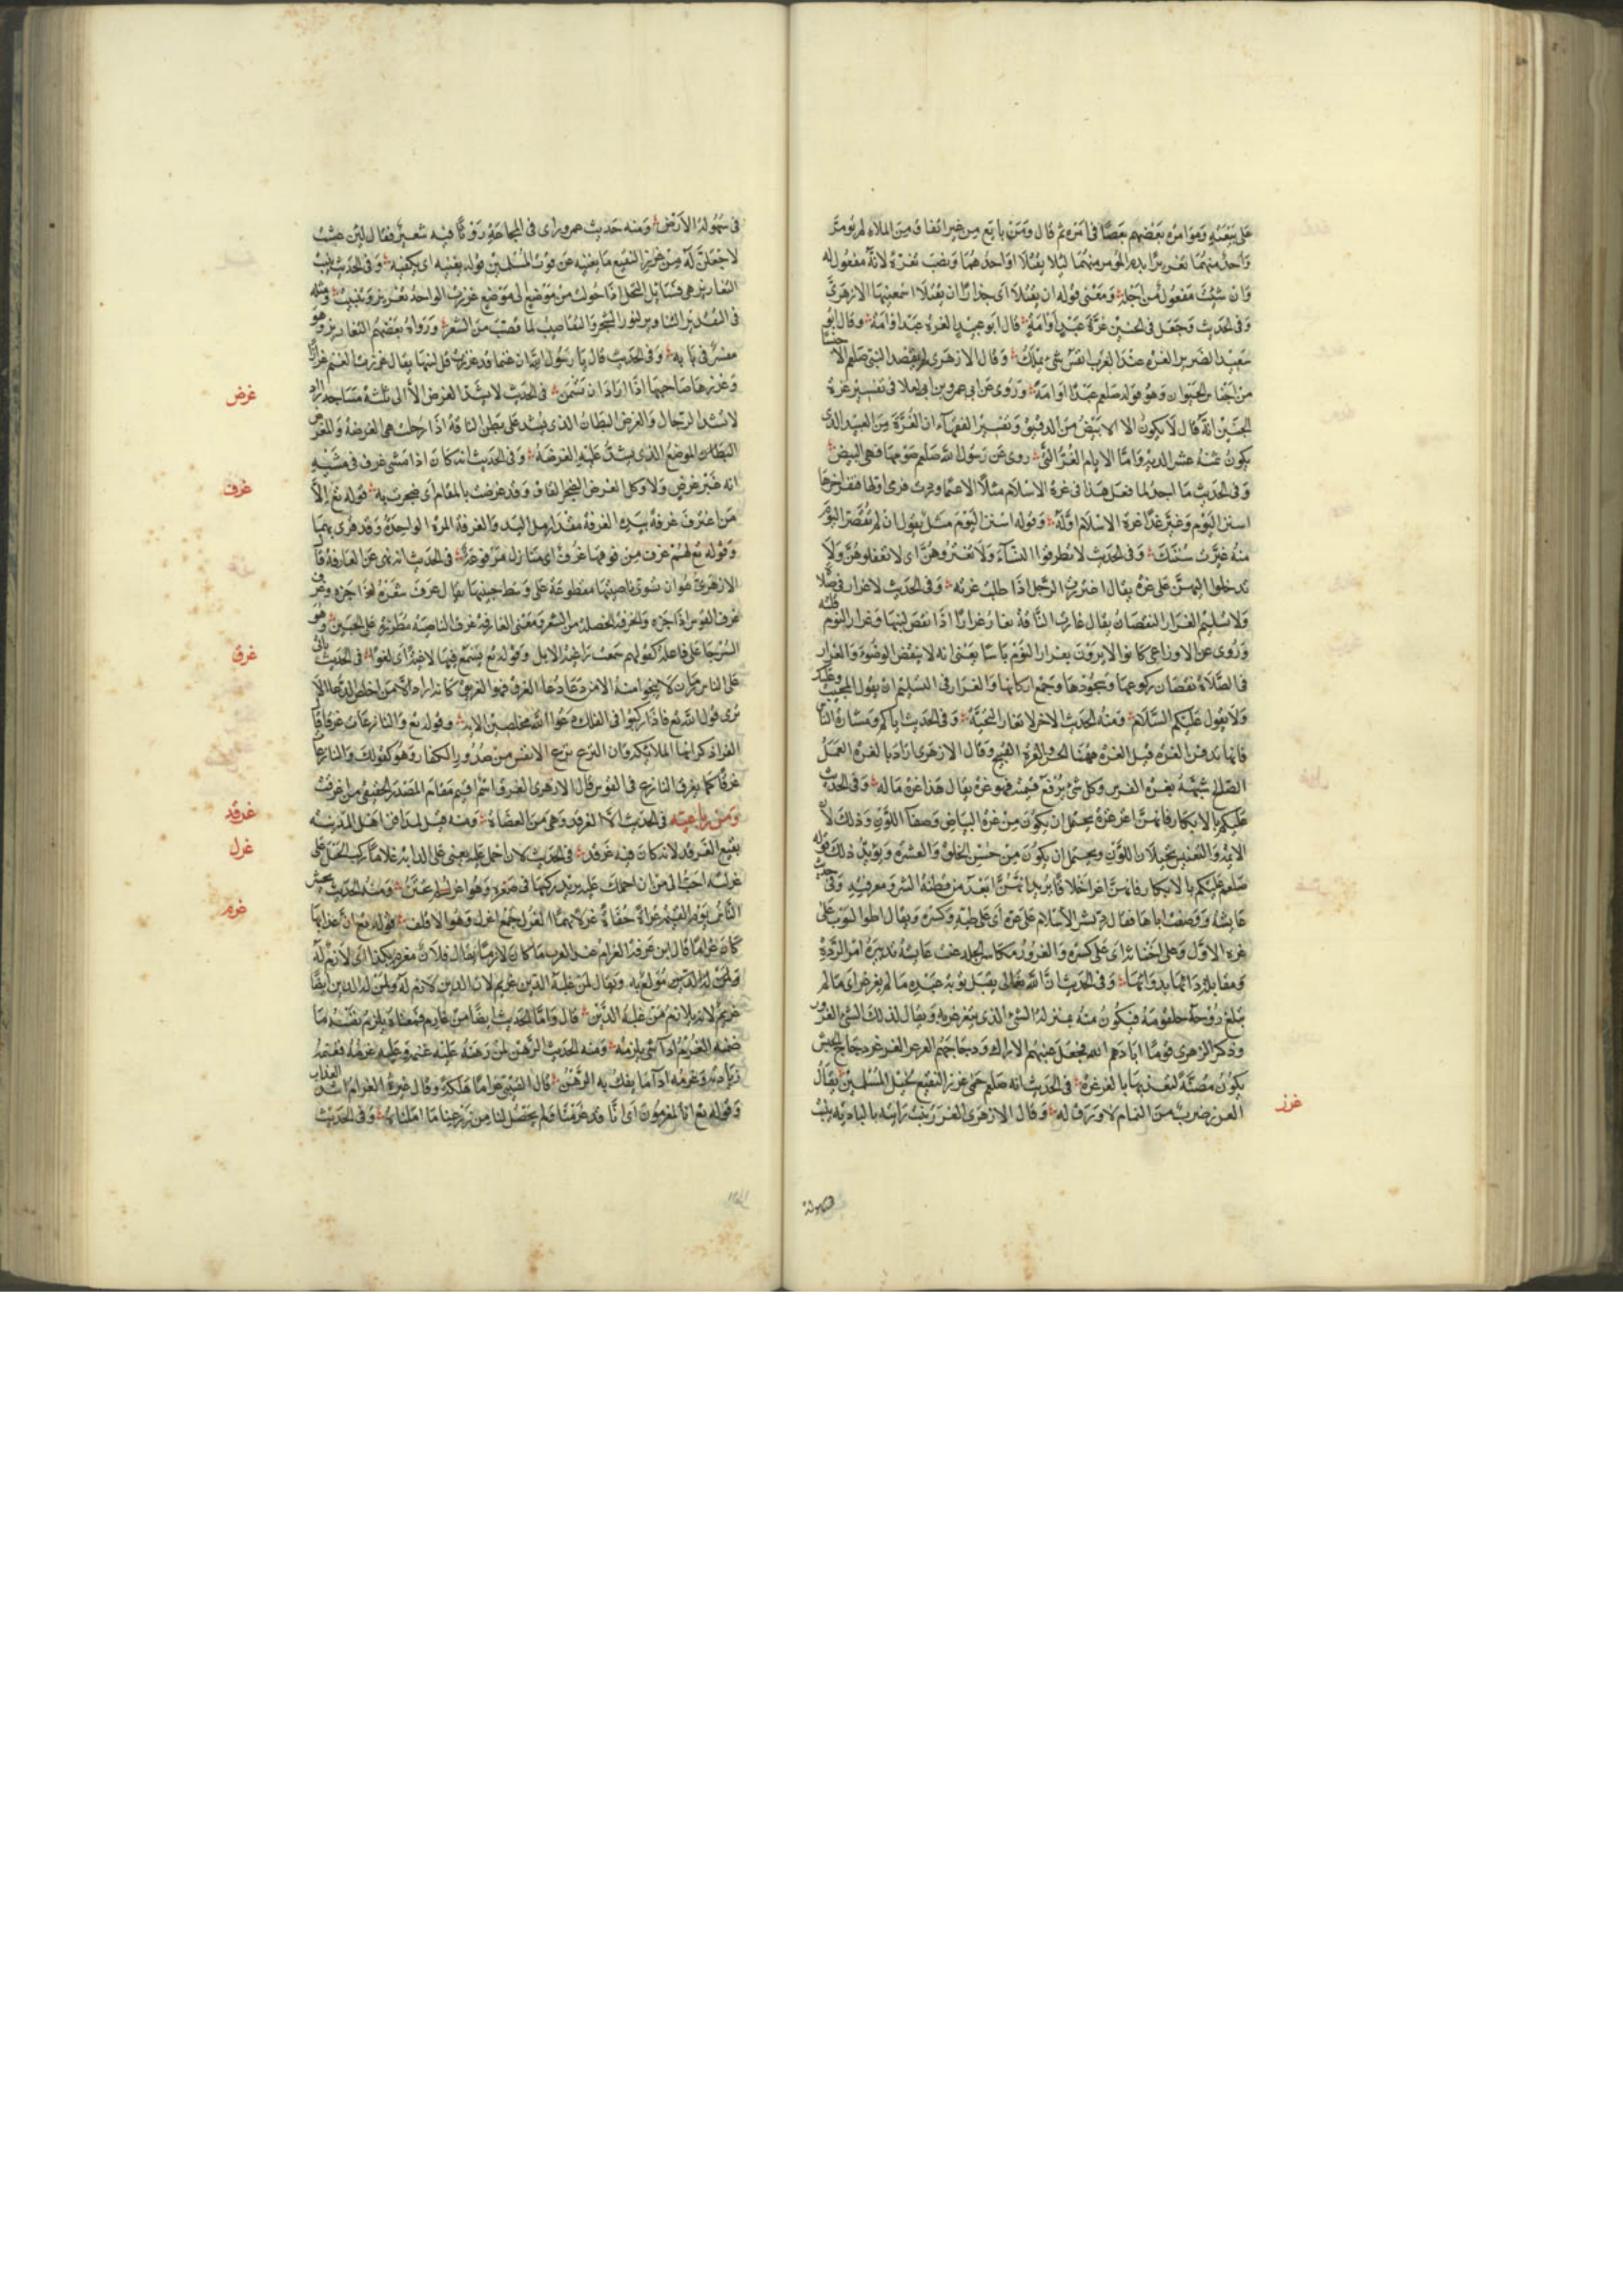 على بيعته ومؤامرة بعضهم بعضا في امره ثم قال ومن بايع من غير اتفاق من الملاء لم يؤمر
واحد منهما تغرير ابدم المؤمر منهما ليلا يقتلا او احدهما ونصب تغرة لانه مفعول له
وان شئت مفعول من اجله ومعنى قوله ان يقتلا اى حذارا ان يقتلا اسمعنيها الازهرى
وفي الحديث وجعل في الجنين غرة عبدا او امة قال ابو عبيد الغرة عبد او امة وقال ابو
سعيد الضرير الغرة عند العرب انفس شئ يملك وقال الازهرى لم يقصد النبي صلعم الا جنسا
من اجناس الحيوان وهو قوله صلعم عبدا او امة وروى عن ابي عمرو بن العلا في تفسير غرة
الجنين انه قال لا يكون الا الابيض من الرقيق وتفسير الفقهاء ان الغرة من العبيد الذى
يكون ثمنه عشر الدية واما الايام الغر التى روى عن رسول الله صلعم صومها فهى البيض
وفي الحديث ما اجد لما فعل هذا في غرة الاسلام مثلا الا غنما وردت فرمى اولها فنفر اخرها
اسنن اليوم وغير غدا غرة الاسلام اوله وقوله اسنن اليوم مثل يقول ان لم تقتص اليوم
منه غيرت سنتك وفي الحديث لا تطرقوا النساء ولا تغتروهن اى لا تغفلوهن ولا
تدخلوا اليهن على غرة يقال اغتررت الرجل اذا طلبت غرته وفي الحديث لا غرار في صلاة
ولا تسليم الغرار النقصان يقال غارت الناقة تغار غرارا اذا نقص لبنها وغرار النوم قلته
وروى عن الاوزاعى كانوا لا يرون بغرار النوم باسا يعنى انه لا ينقض الوضوء والغرار
في الصلاة نقصان ركوعها وسجودها وجمع اركانها والغرار في التسليم ان يقول المجيب وعليك
ولا يقول عليكم السلام ومنه الحديث الاخر لا تغار التحية وفي الحديث اياكم ومشارة الناس
فانها تدفن الغرة قيل الغرة ههنا الحسن والعرة القبيح وقال الازهرى اراد بالغرة العمل
الصالح شبهه بغرة الفرس وكل شئ ترفع قيمته فهو غرة يقال هذا غرة ماله وفي الحديث
عليكم بالابكار فانهن اغر غرة يحتمل ان يكون من غرة البياض وصفا اللون وذلك لان
الايمة والتعنيس يحيلان اللون ويحتمل ان يكون من حسن الخلق والعشرة ويؤيد ذلك قوله
صلعم عليكم بالابكار فانهن اغر اخلاقا يريد انهن ابعد من فطنة الشر ومعرفته وفي حديث
عايشة ووصفت اباها فقال رد نشر الاسلام على غره اى على طيه وكسره ويقال اطو الثوب على
غره الاول وعلى اخناثه اى على كسره والغرور مكاسر الجلد عنت عايشة تدبيره امر الردة
ومقابلة دائها بدوائها وفي الحديث ان الله تعالى يقبل توبة عبده ما لم يغرغر اى ما لم
تبلغ روحه حلقومه فيكون منه بمنزلة الشئ الذى يتغرغر به ويقال لذلك الشئ الغرور
وذكر الزهرى قوما ابادهم الله فجعل عنبهم الاراك ودجاجهم الغرغر الغرغر دجاج الحبش
يكون مصنة لتغذيها بالغرغرة في الحديث انه صلعم حمى غرز النقيع لخيل المسلمين يقال
الغرز ضرب من الثمام لا ورق له وقال الازهرى الغرز نبت رايته بالبادية ينبت
غرز
في سهولة الارض ومنه حديث عمر وراى في المجاعة روثا فيه شعير فقال لين عشت
لاجعلن له من غرز النقيع ما يغنيه عن قوت المسلمين قوله يغنيه اى يكفيه وفي الحديث ينبت
التغاريز هى فسايل النخل اذا حولت من موضع الى موضع غرزت الواحد تغريز وتنبيت ومثله
في التقدير التناوير لنور الشجر والتقاصيب لما قصب من الشعر ورواه بعضهم التغارير وهو
مفسر في بابه وفي الحديث قال يا رسول الله ان غنمنا قد غرزت قل لبنها يقال غرزت الغنم غرازا
وغرزها صاحبها اذا اراد ان تسمن في الحديث لا تشد الغرض الا الى ثلثة مساجد اراد
لا تشد الرحال والغرض البطان الذى يشد على بطن الناقة اذا رحلت هى الغرضة والمغرض
البطان الموضع الذى يشق عليه الغرضة وفي الحديث انه كان اذا مشى عرف في مشيه
انه غير غرض ولا وكل الغرض الضجر القلق وقد غرضت بالمقام اى ضجرت به قوله تع الا
من اغترف غرفة بيده الغرفة مقدار مل اليد والغرفة المرة الواحدة وقد قرئ بهما
وقوله تع لهم غرف من فوقها غرف اى منازل مرفوعة في الحديث انه نهى عن الغارفة قال
الازهرى هو ان تسوى ناصيتها مقطوعة على وسط جبينها يقال غرف شعره اذا جزه وغرف
عرف الفرس اذا جزه والغرفة الخصلة من الشعر ومعنى الغارفة غرف الناصية مطررة على الجبين وهو
على فاعلة كقولهم سمعت راغية الابل وقوله تع لا تسمع فيها لاغية اى لغوا في الحديث ياتى
على الناس زمان لا ينجوا منه الا من دعا دعاء الغرق فهو الغريق كانه اراد الا من اخلص الدعاء الا
ترى قول الله تع فاذا ركبوا في الفلك دعوا الله مخلصين الاية وقوله تع والنازعات غرقا قال
الفراء ذكر انها الملائكة وان النزع نزع الانفس من صدور الكفار وهو كقولك والنازعات
غرقا كما يغرق النازع في القوس قال الازهرى الغرق اسم اقيم مقام المصدر الحقيقى من اغرقت
ومن رباعيه في الحديث الا الغرقد وهى من العضاه ومنه قيل لمدافن اهل المدينة
بقيع الغرقد لانه كان فيه غرقد في الحديث لان احمل عليه يعنى على الدابة غلاما ركب الخيل على
غرلته احب الى من ان احملك عليه يريد ركبها في صغره وهو اغرل لم يختن ومنه الحديث يحشر
الناس يوم القيمة عراة حفاة غرلا بهما الغرل جمع اغرل وهو الاقلف قوله تع ان عذابها
كان غراما قال ابن عرفة الغرام عند العرب ما كان لازما يقال فلان مغرم بكذا اى لازم له
مولع به ويقال لمن عليه الدين غريم لان الدين لازم له ولمن له الدين ايضا
غريم لانه يلازم من عليه الدين قال واما الحديث ايضا من غارم فمعناه يلزم نفسه ما
ضمنه الغرم اداء شئ يلزمه ومنه الحديث الرهن لمن رهنه عليه غنمه وعليه غرمه فغنمه
زيادته وغرمه اداء ما يفك به الرهن قال القتيبى غراما هلكة وقال غيره الغرام اشد العذاب
وقوله تع انا لمغرمون اى انا قد غرمنا ولم يحصل لنا من زرعنا ما املناه وفي الحديث
غرض
غرف
غرق
غرقد
غرل
غرم